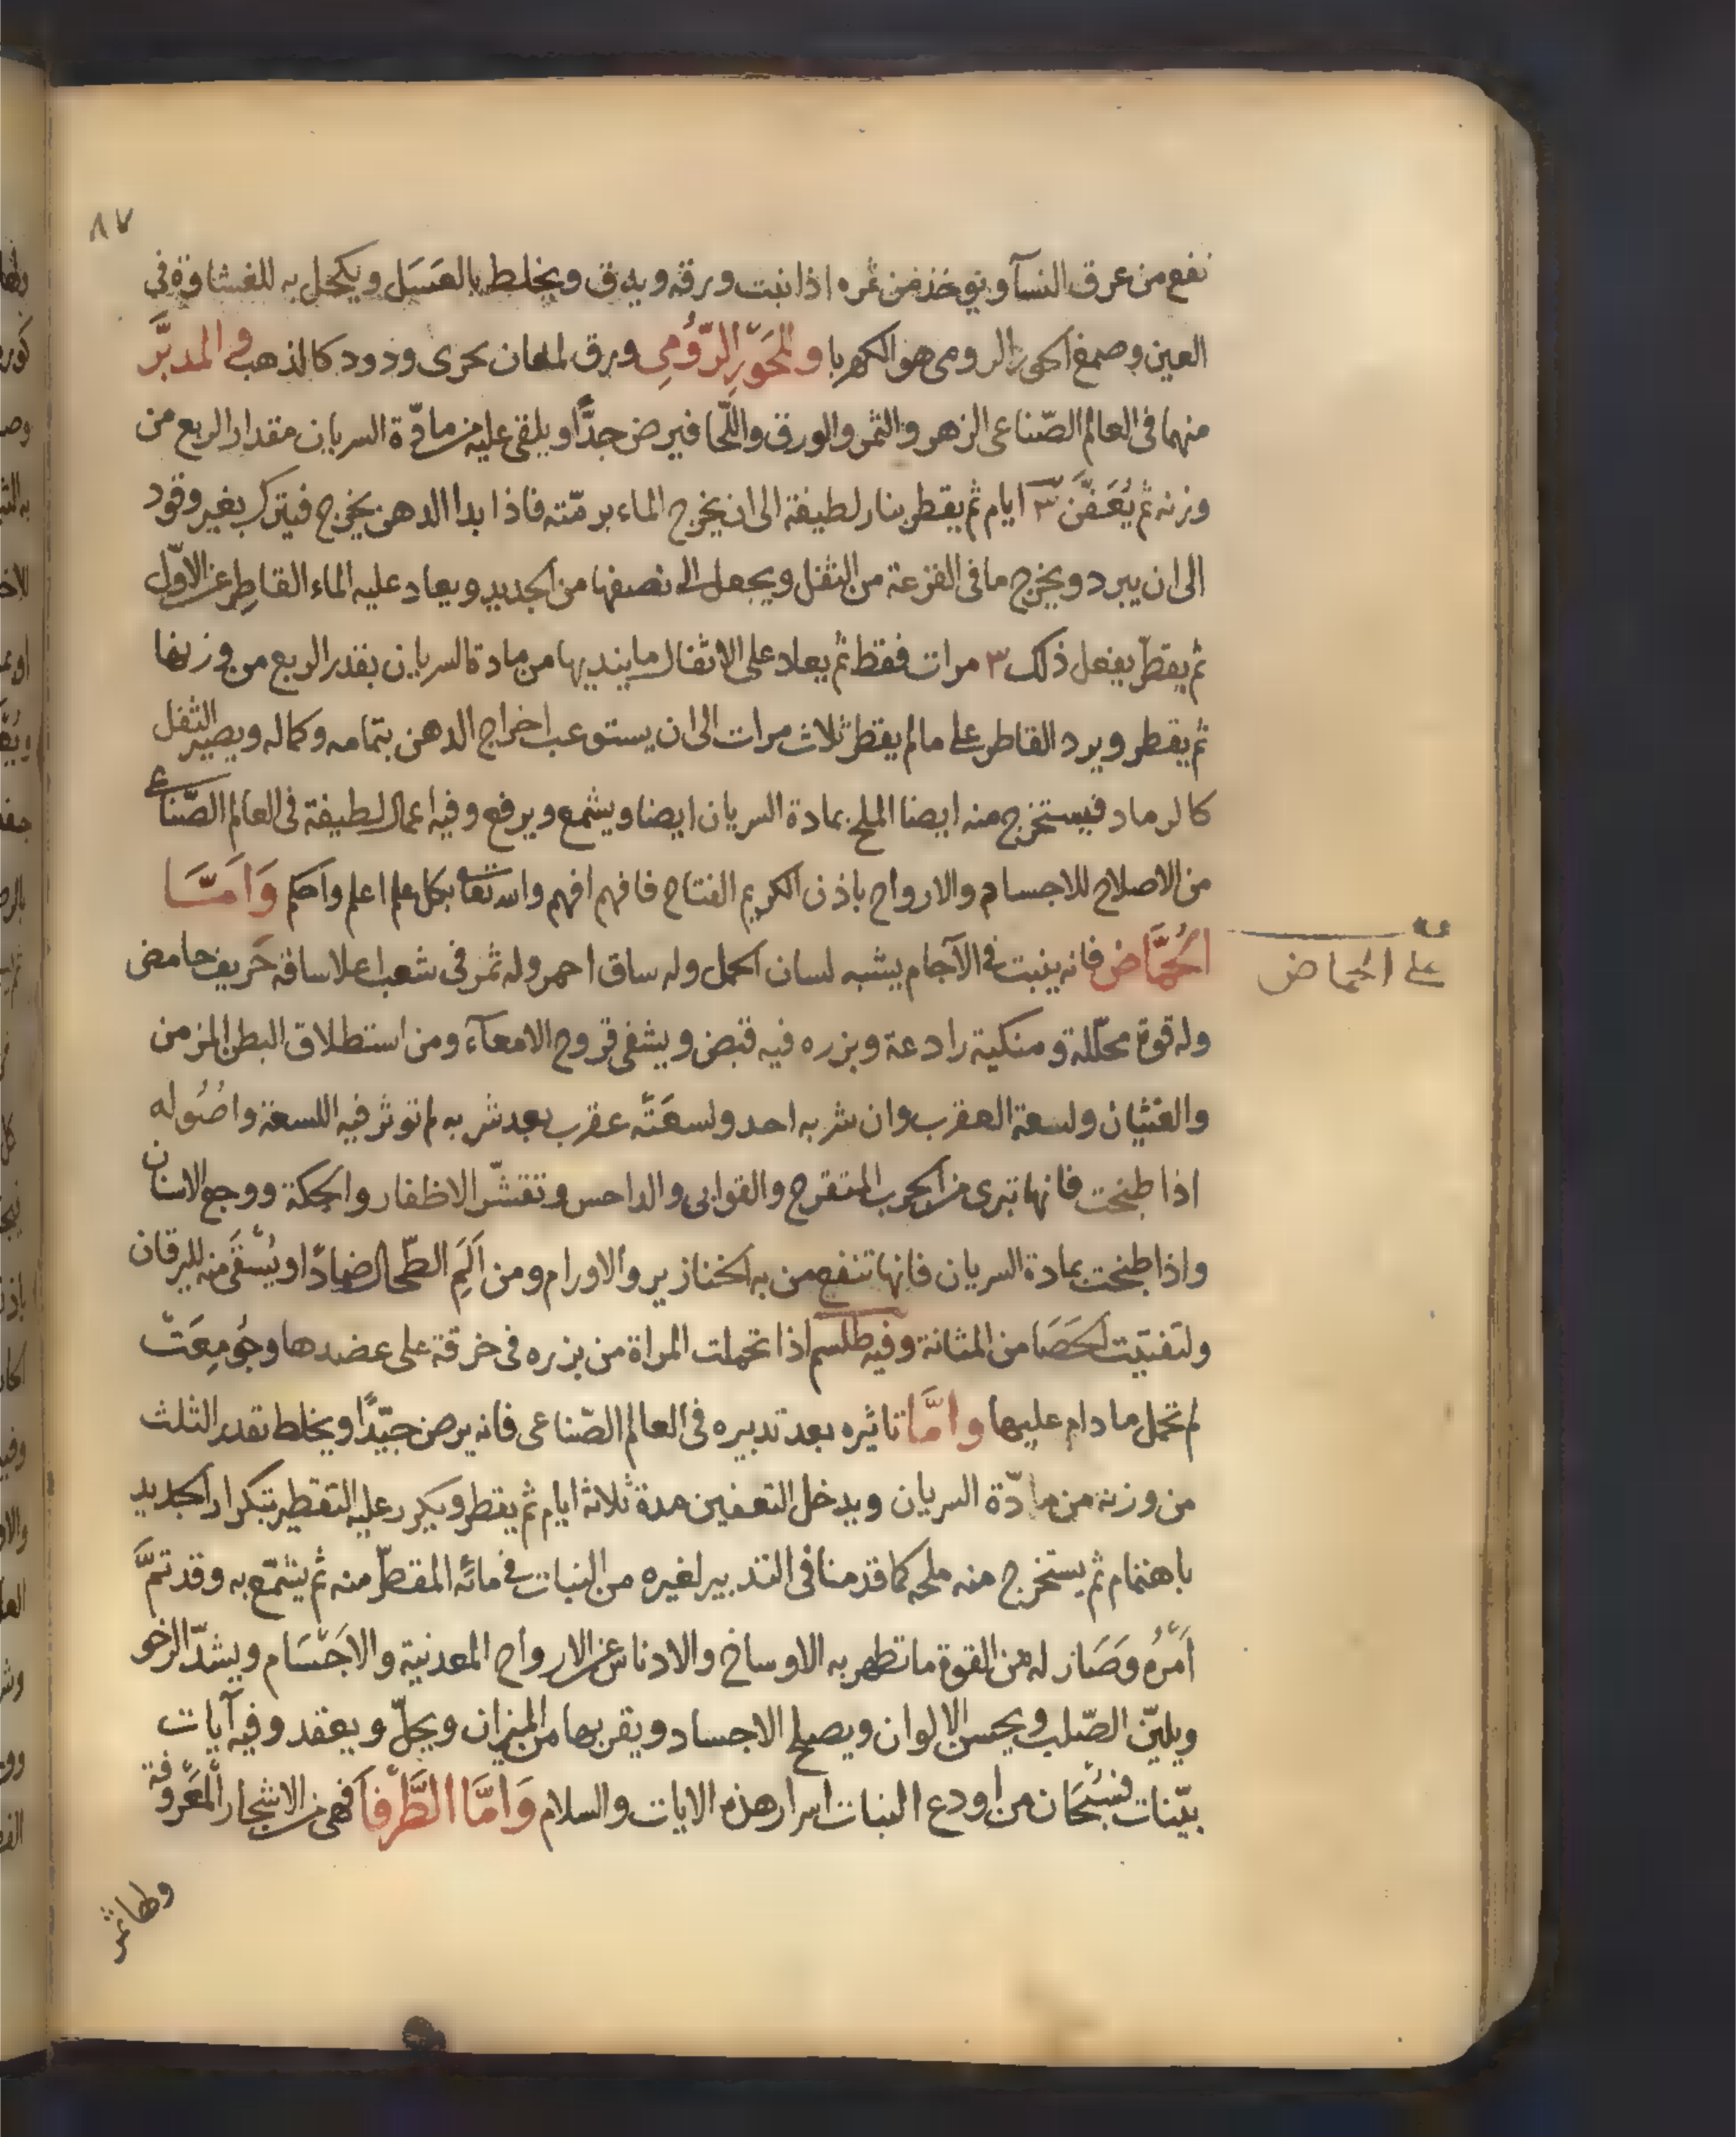 ٨٧
نفع من عرق النسآ ويوخذ من ثمره اذا نبت ورقه ويدق ويخلط بالعَسَل ويكحل به للغشاوة في
العين وصمغ الحور الرومى هو الكهربا والحَوْر الرّومِى ورق لمعان يحرى ودود كالذهب والمدبَّر
منهما فى العالم الصّناعى الزهر والثمر والورق واللّحا فيرض جدًّا ويلقى عليه من مادّة السريان مقدار الربع من
وزنه ثم يُعَفَّن ٣ ايام ثم يقطر بنار لطيفة الى ان يخرج الماء برمّته فاذا بدا الدهن يخرج فيترك بغير وقود
الى ان يبرد ويخرج ما فى القرعة من الثفل ويجعل الى نصفها من الجديد ويعاد عليه الماء القاطر عن الاوّل
ثم يقطّر يفعل ذلك ٣ مرات فقط ثم يعاد على الاثفال ما ينديها من مادة السريان بقدر الربع من وزنها
ثم يقطر ويرد القاطر على ما لم يقطر ثلاث مرات الى ان يستوعب اخراج الدهن بتمامه وكماله ويصير الثفل
كالرماد فيستخرج منه ايضا الملح بمادة السريان ايضا ويشمع ويرفع وفيه اعمال لطيفة فى العالم الصّناعى
من الاصلاح للاجسام والارواح باذن الكريم الفتاح فافهم افهم والله تعا بكل علم اعلم واحكم وَاَمَّا
الحُمَّاض فانه ينبت فى الآجام يشبه لسان الحمل وله ساق احمر وله ثمر فى شعب اعلا ساقه حَريف حامض
على الحماض
وله قوة محلّلة ومنكية رادعة وبزره فيه قبض ويشفى قروح الامعآء ومن استطلاق البطن المزمن
والغثيان ولسعة العقرب وان شربه احد ولسعَتْه عقرب بعد شربه لم توثر فيه اللسعة واصُوله
اذا طبخت فانها تبرى من الجرب المتقرح والقوابى والداحس وتقشّر الاظفار والحكة ووجع الاسنان
واذا طبخت بمادة السريان فانها تنفع من به الخنازير والاورام ومن اَلَمِ الطّحال ضمادًا ويُسْقَى منه لليرقان
ولتفتيت الحَصَا من المثانة وفيه طلسم اذا تحملت المراة من بزره فى خرقة على عضدها وجُومِعَتْ
لم تحمل ما دام عليها وامَّا تاثيره بعد تدبيره فى العالم الصّناعى فانه يرض جيّدًا ويخلط بقدر الثلث
من وزنه من مادّة السريان ويدخل التعفين مدة ثلاثة ايام ثم يقطر ويكرر عليه التقطير بتكرار الجديد
باهتمام ثم يستخرج منه ملحه كما قدمنا فى التدبير لغيره من النبات فى مائه المقطّر منه ثم يشمّع به وقد تمَّ
اَمْرُه وصَار له من القوة ما تطهر به الاوساخ والادناس عن الارواح المعدنية والاجْسَام ويشدّ الرخو
ويليّن الصّلب ويحسن الالوان ويصلح الاجساد ويقربها من الميزان ويحلّ ويعقد وفيه آيات
بيّنات فسُبْحَان من اودع النبات اسرار هذه الايات والسلام وَامَّا الطَّرْفَا فهى من الاشجار المعْروفة
ولها ثمر